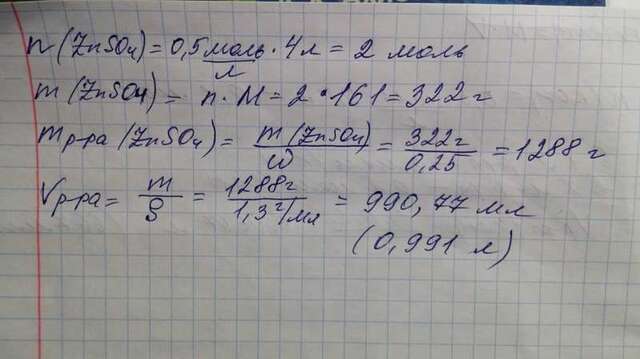 n(ZnSO4) = 0,5 моль/л · 4л = 2 моль
m(ZnSO4) = n · M = 2 · 161 = 322 г
mр-ра (ZnSO4) = m(ZnSO4)/ω = 322г/0,25 = 1288 г
Vр-ра = m/ρ = 1288г/1,3 г/мл = 990,77 мл
(0,991 л)